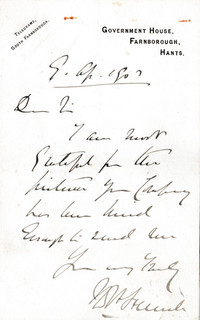 Telegrams,
South Farnborough.
Government House,
Farnborough,
Hants.
9. Ap. 1903
Dear Sir
I am most
grateful for the
pictures your Company
has been kind
enough to send me
Yours very truly